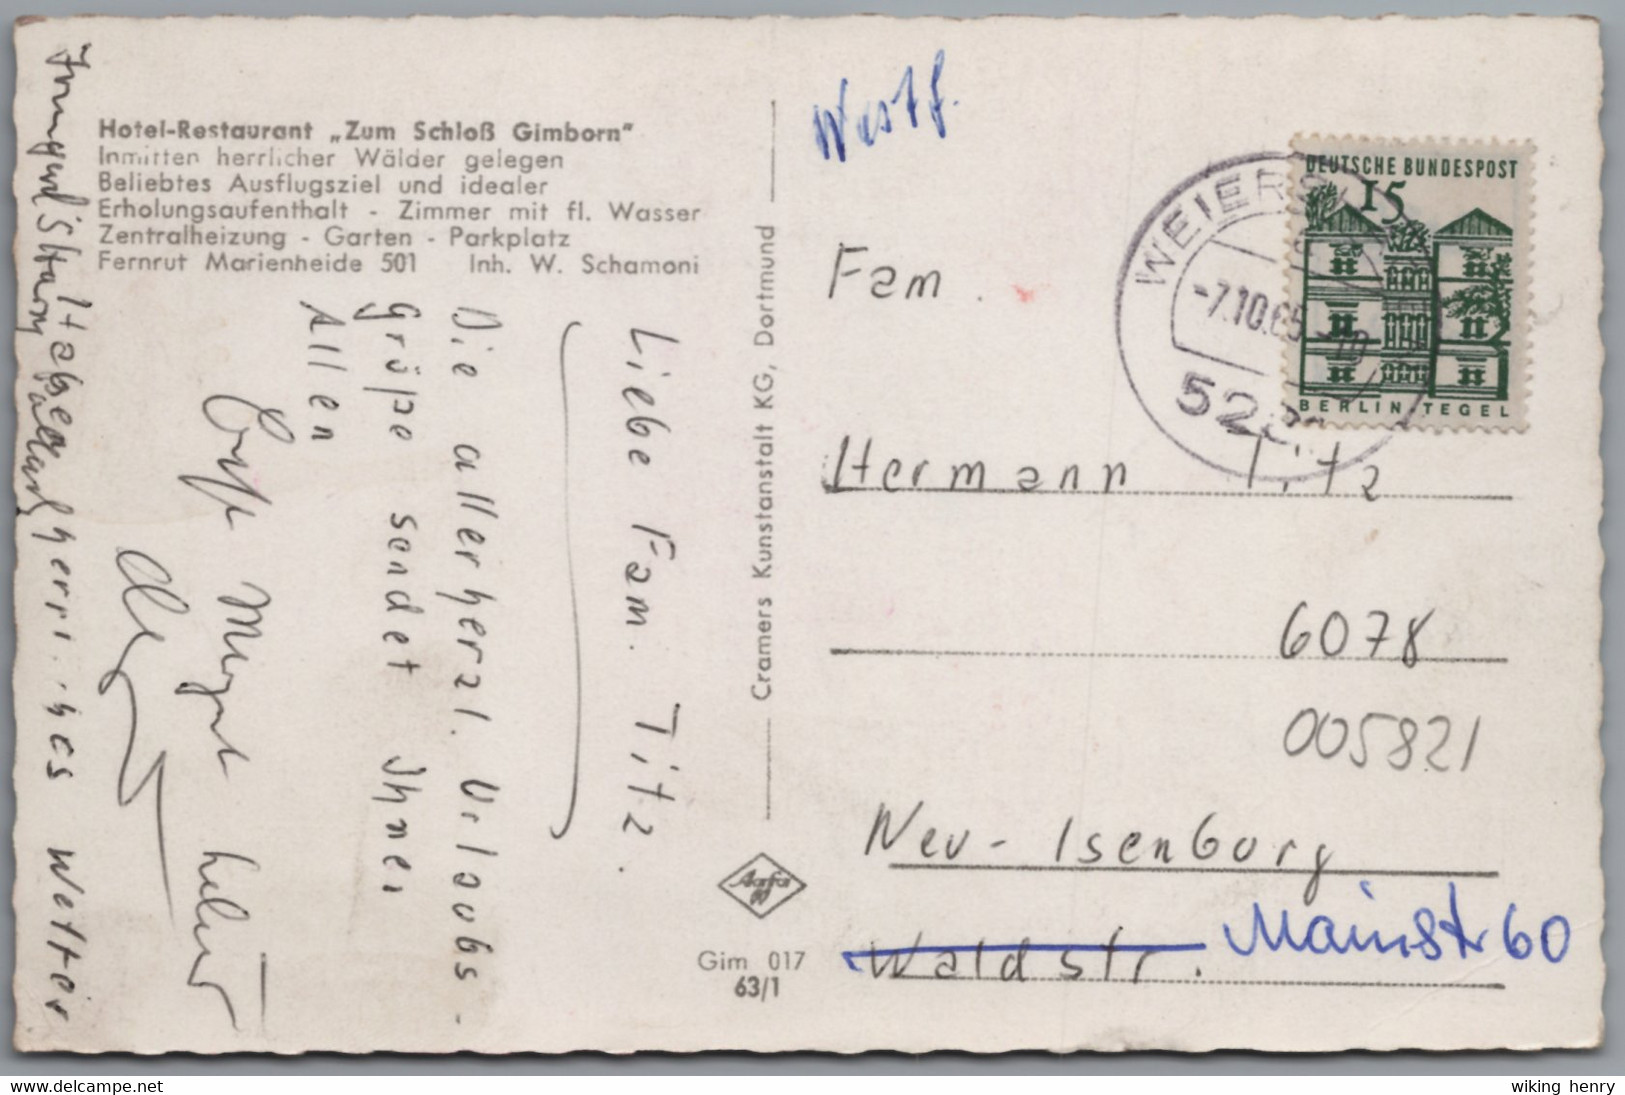 Hotel-Restaurant „Zum Schloß Gimborn"
Inmitten herrlicher Wälder gelegen
Beliebtes Ausflugsziel und idealer
Erholungsaufenthalt - Zimmer mit fl. Wasser
Zentralheizung - Garten - Parkplatz
Fernruf Marienheide 501 Inh. W. Schamoni
Liebe Fam. Titz.
Die allerherzl. Urlaubs-
grüße sendet Ihnen
Allen
Haben herrliches Wetter
Cramers Kunstanstalt KG, Dortmund
Agfa
Gim 017
63/1
Westf.
DEUTSCHE BUNDESPOST
15
BERLIN TEGEL
WEIERS
-7.10.65
Fam.
Hermann Titz
6078
005821
Neu-Isenburg
Waldstr. Mainstr 60
delcampe.net
wiking henry